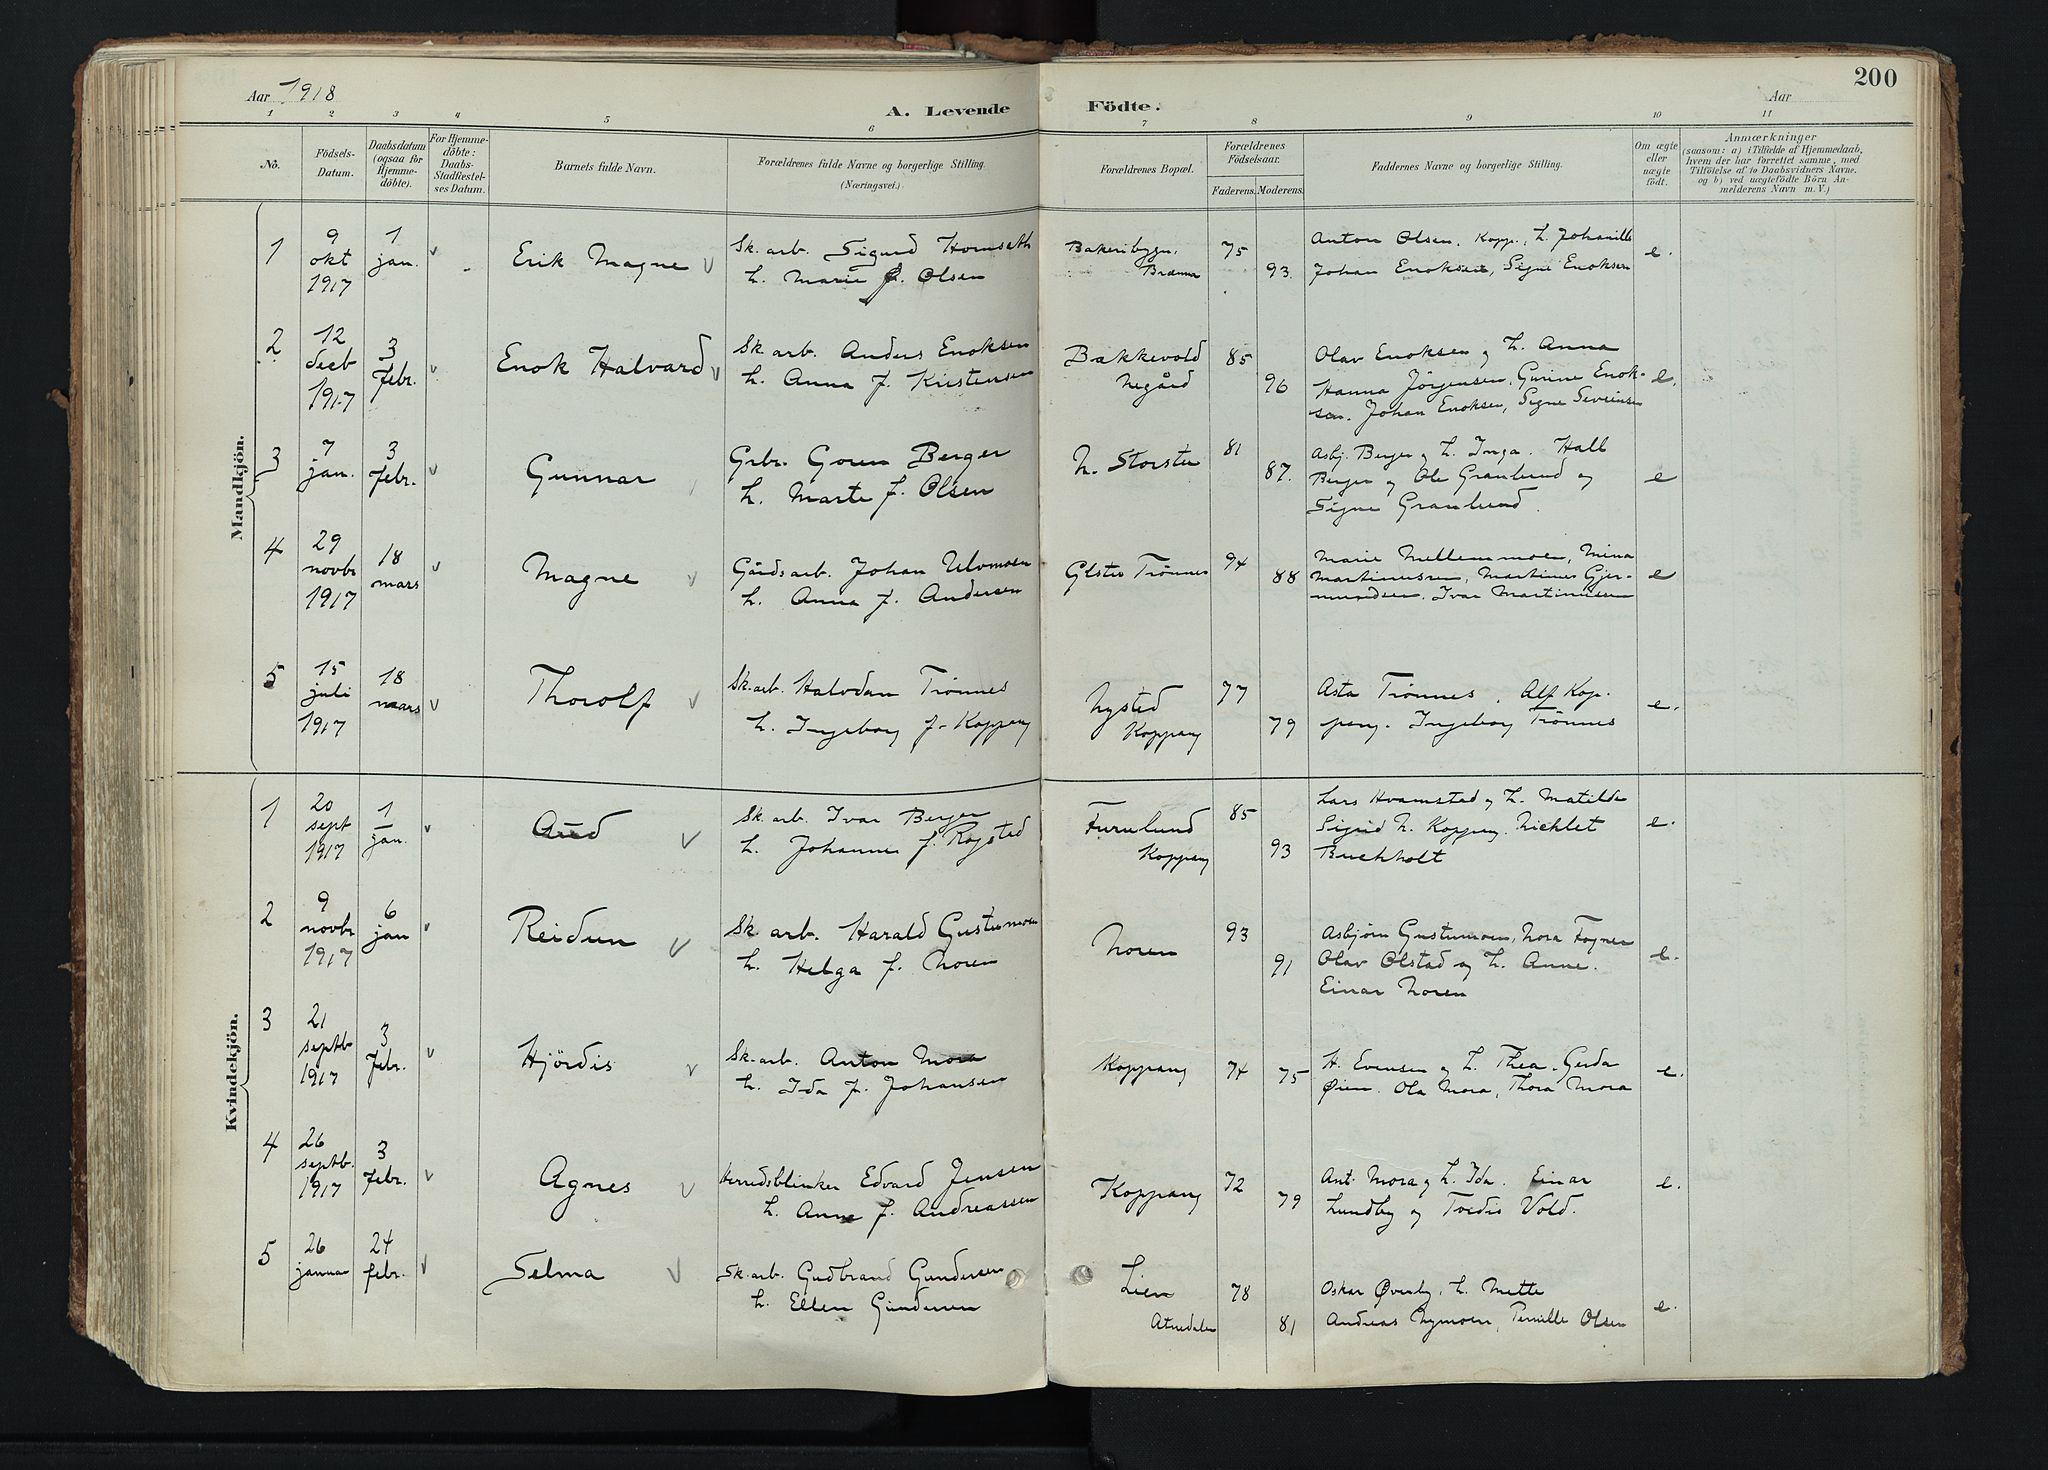 200
Aar 1918
A. Levende Födte.
Aar
1 2 3 4 5 6 7 8 9 10 11
No.
Födsels-Datum.
Daabsdatum (ogsaa for Hjemmedöbte).
For Hjemmedöbte: Daabs-Stadfæstelses Datum.
Barnets fulde Navn.
Forældrenes fulde Navne og borgerlige Stilling. (Næringsvei.)
Forældrenes Bopæl.
Forældrenes Födselsaar.
Faderens. Moderens.
Faddernes Navne og borgerlige Stilling.
Om ægte eller uægte födt.
Anmærkninger
(saasom: a) i Tilfælde af Hjemmedaab,
hvem der har forrettet samme, med
Tilföielse af to Daabsvidners Navne.
og b) ved uægtefödte Börn Anmelderens Navn m. V.)
Mandkjön.
1
9 okt 1917
1 jan.
Erik Magne
Sk. arb. Sigurd Hornseth
h. Marie f. Olsen
Bakeribygn.
75
93.
Anton Olsen, Kopp., h. Johanille
Johan Enoksen, Signe Enoksen
e.
2
12 decb 1917
3 febr.
Enok Halvard
Sk. arb. Anders Enoksen
h. Anna f. Kristensen
Bakkevold
Negård
85
96
Olav Enoksen og h. Anna
Hanna Jörgensen, Gurine Enok-
sen. Johan Enoksen, Signe Severinsen
e.
3
7 jan.
3 febr.
Gunnar
Grbr. Goren Berger
h. Marte f. Olsen
N. Storsten
81
87.
Asbj. Berger og h. Inga. Hall
Berger og Ole Granlund og
Signe Granlund.
e
4
29 novbr 1917
18 mars
Magne
Gårdsarb. Johan Ulvmoen
h. Anna f. Andersen
Trönnes
94
88
Marie Mellemmoen, Mina
Martinussen, Martinus Gjer-
mundsen. Ivar Martinussen
e
5
15 juli 1917
18 mars
Thorolf
Sk. arb. Halvdan Trönnes
h. Ingeborg f. Koppang
Nysted
Koppang
77
79
Asta Trönnes. Alf Kop-
pang. Ingeborg Trönnes
e.
Kvindekjön.
1
20 sept 1917
1 jan.
Aud
Sk. arb. Ivar Berger
h. Johanne f. Rogstad
Furulund
Koppang
85
93
Lars Kvamstad og h. Matilde
Sigrid N. Koppang. Nicklet
Buchholt
e.
2
9 novbr 1917
6 jan
Reidun
Sk. arb. Harald Gustumoen
h. Helga f. Noren
Noren
93
91
Asbjörn Gustumoen, Nora Fogner
Olav Olstad og h. Anne.
Einar Noren
e.
3
21 septb 1917
3 febr.
Hjördis
Sk. arb. Anton Mora
h. Ida f. Johansen
Koppang
74
75
H. Evensen og h. Thea. Gerda
Øien. Ola Mora, Thora Mora
e.
4
26 septb. 1917
3 febr.
Agnes
Edvard Jensen
h. Anne f. Andreassen
Koppang
72
79
Ant. Mora og h. Ida. Einar
Lundby og Tordis Vold.
e.
5
26 januar
24 febr.
Selma
Sk. arb. Gudbrand Gundersen
h. Ellen Gundersen
Lien
Atnedalen
78
81
Oskar Øverby, h. Mette
Andreas Nymoen, Pernille Olsen
e.